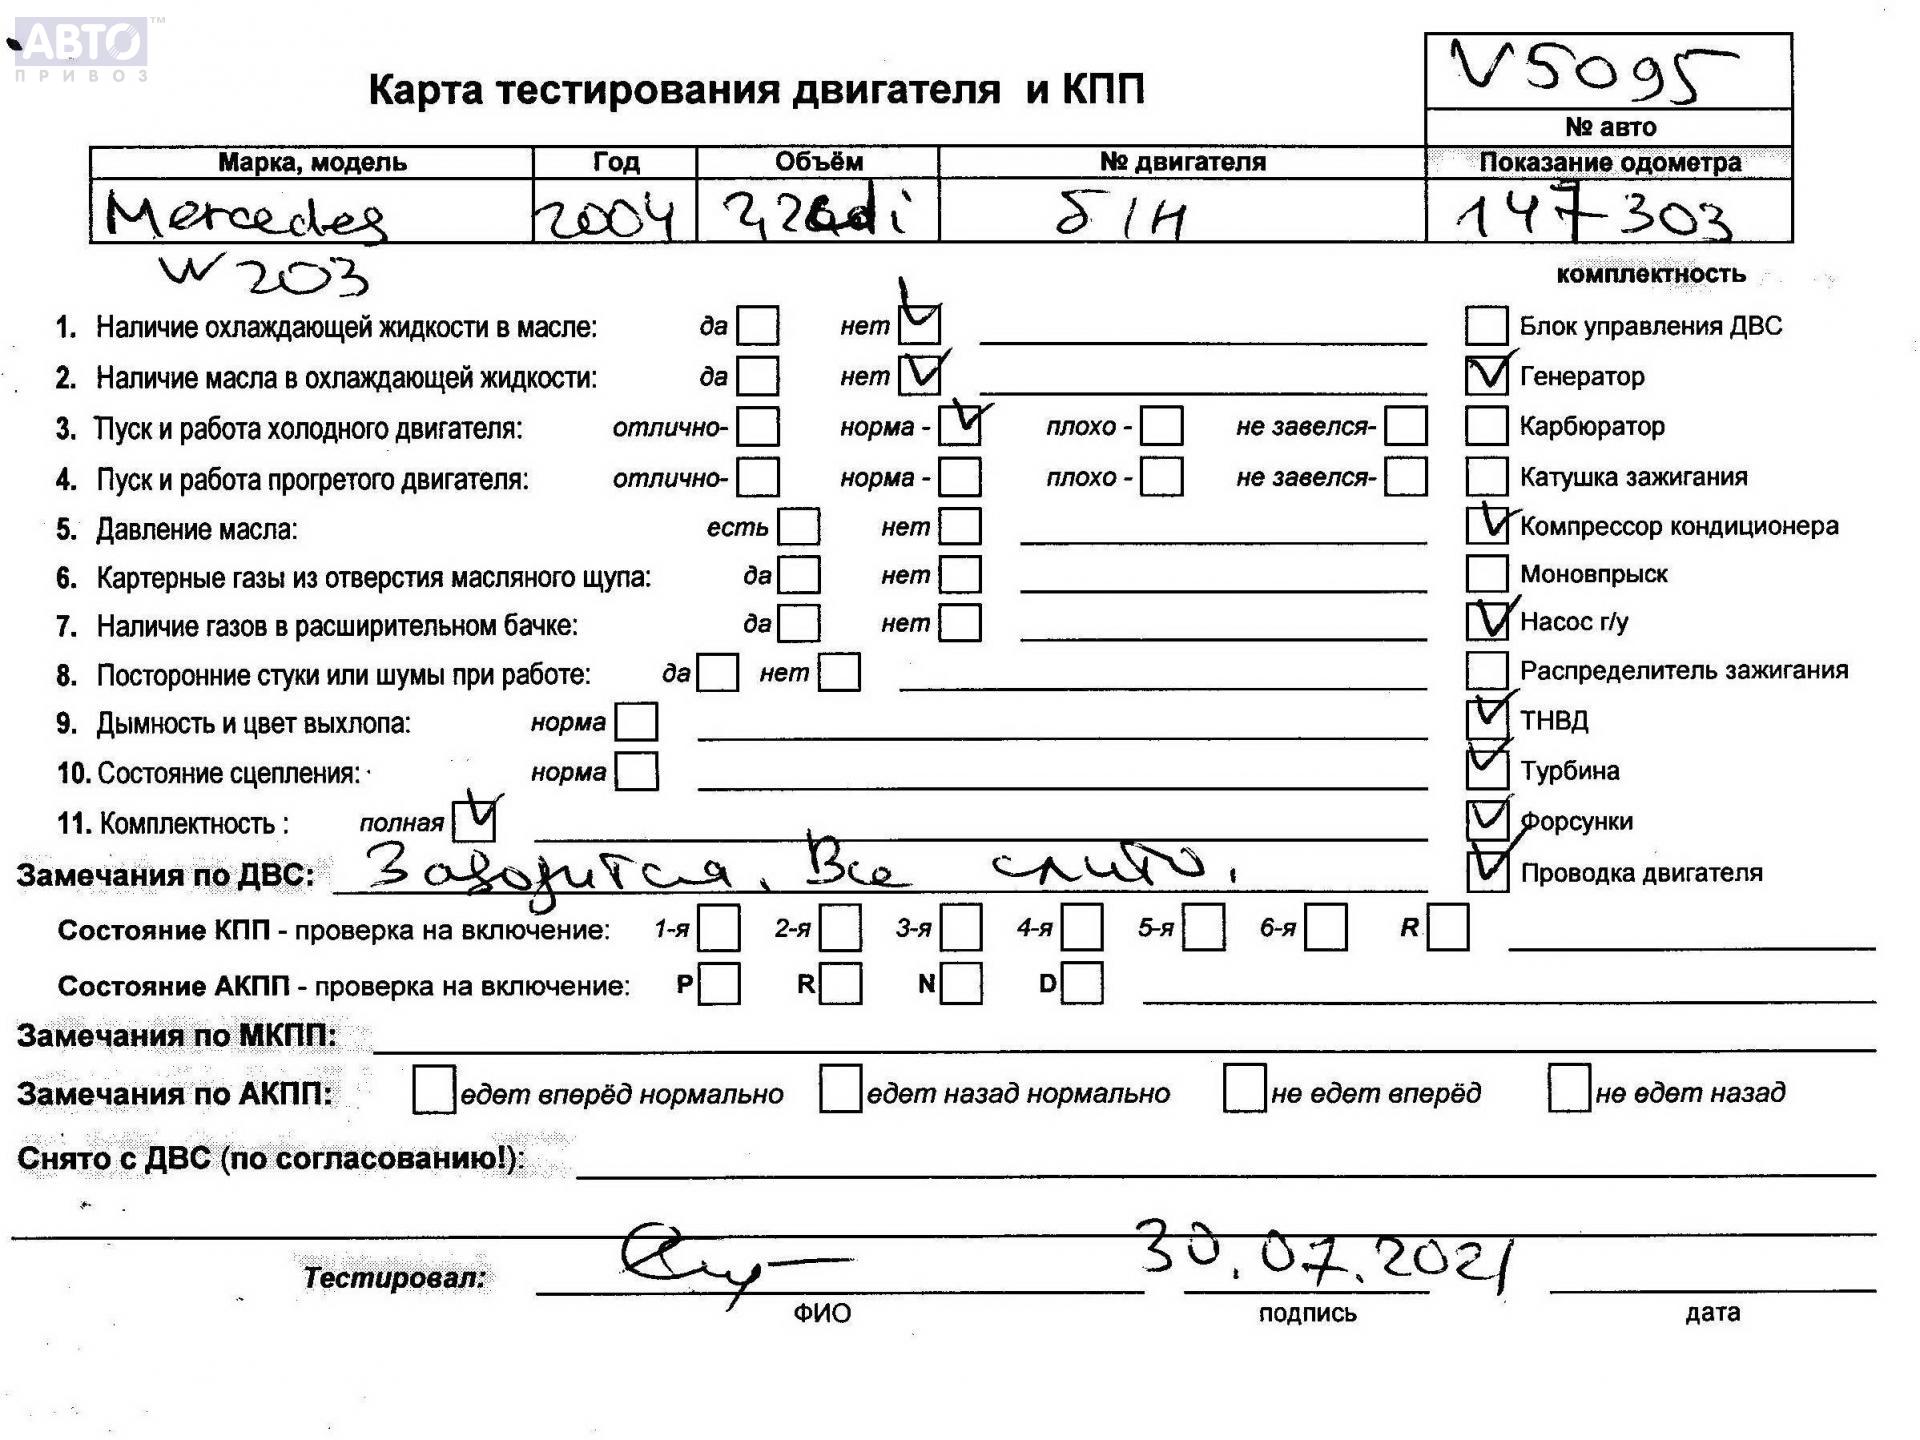 АВТО™
ПРИВОЗ
V5095
Карта тестирования двигателя и КПП
№ авто
Марка, модель Год Объём № двигателя Показание одометра
Mercedes 2004 2,2cdi б/н 147303
W203
комплектность
1. Наличие охлаждающей жидкости в масле: да нет Блок управления ДВС
2. Наличие масла в охлаждающей жидкости: да нет Генератор
3. Пуск и работа холодного двигателя: отлично- норма - плохо - не завелся- Карбюратор
4. Пуск и работа прогретого двигателя: отлично- норма - плохо - не завелся- Катушка зажигания
5. Давление масла: есть нет Компрессор кондиционера
6. Картерные газы из отверстия масляного щупа: да нет Моновпрыск
7. Наличие газов в расширительном бачке: да нет Насос г/у
8. Посторонние стуки или шумы при работе: да нет Распределитель зажигания
9. Дымность и цвет выхлопа: норма ТНВД
10. Состояние сцепления: норма Турбина
11. Комплектность : полная Форсунки
Замечания по ДВС: Заводится. Все слито. Проводка двигателя
Состояние КПП - проверка на включение: 1-я 2-я 3-я 4-я 5-я 6-я R
Состояние АКПП - проверка на включение: P R N D
Замечания по МКПП:
Замечания по АКПП: едет вперёд нормально едет назад нормально не едет вперёд не едет назад
Снято с ДВС (по согласованию!):
Тестировал: 30.07.2021
ФИО подпись дата